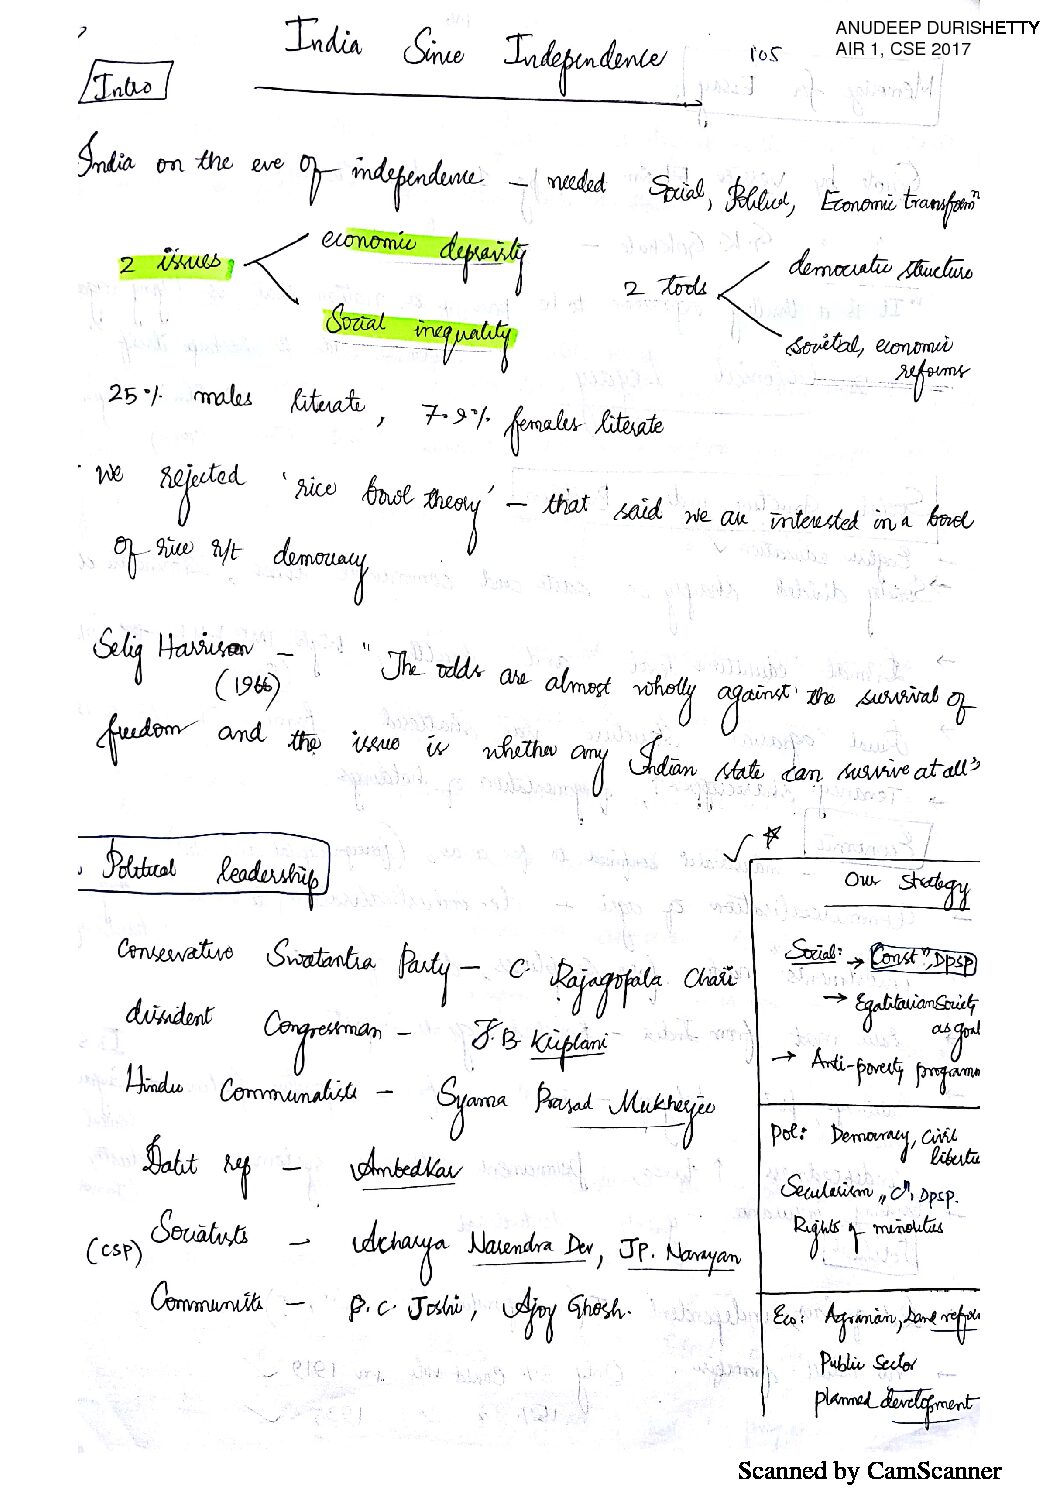 ANUDEEP DURISHETTY
AIR 1, CSE 2017
India Since Independence
105
Intro
India on the eve of independence - needed Social, Political, Economic transformⁿ
2 issues
economic depravity
Social inequality
2 tools
democratic structure
societal, economic
reforms
25% males literate, 7.9% females literate
we rejected 'rice bowl theory' - that said we are interested in a bowl
of rice r/t democracy
Selig Harrison -
(1966)
"The odds are almost wholly against the survival of
freedom and the issue is whether any Indian state can survive at all"
Political leadership
Conservative Swatantra Party - C Rajagopala Chari
dissident Congressman - J.B Kriplani
Hindu Communalists - Syama Prasad Mukherjee
Dalit rep - Ambedkar
(CSP) Socialists - Acharya Narendra Dev, JP. Narayan
Communists - P.C. Joshi, Ajoy Ghosh.
Our strategy
Social: → Constⁿ, DPSP
→ Egalitarian Society
as goal
→ Anti-poverty program
Pol: Democracy, civil
libertie
Secularism, "C", DPSP.
Rights of minorities
Eco: Agrarian, Land refor
Public sector
planned development
Scanned by CamScanner